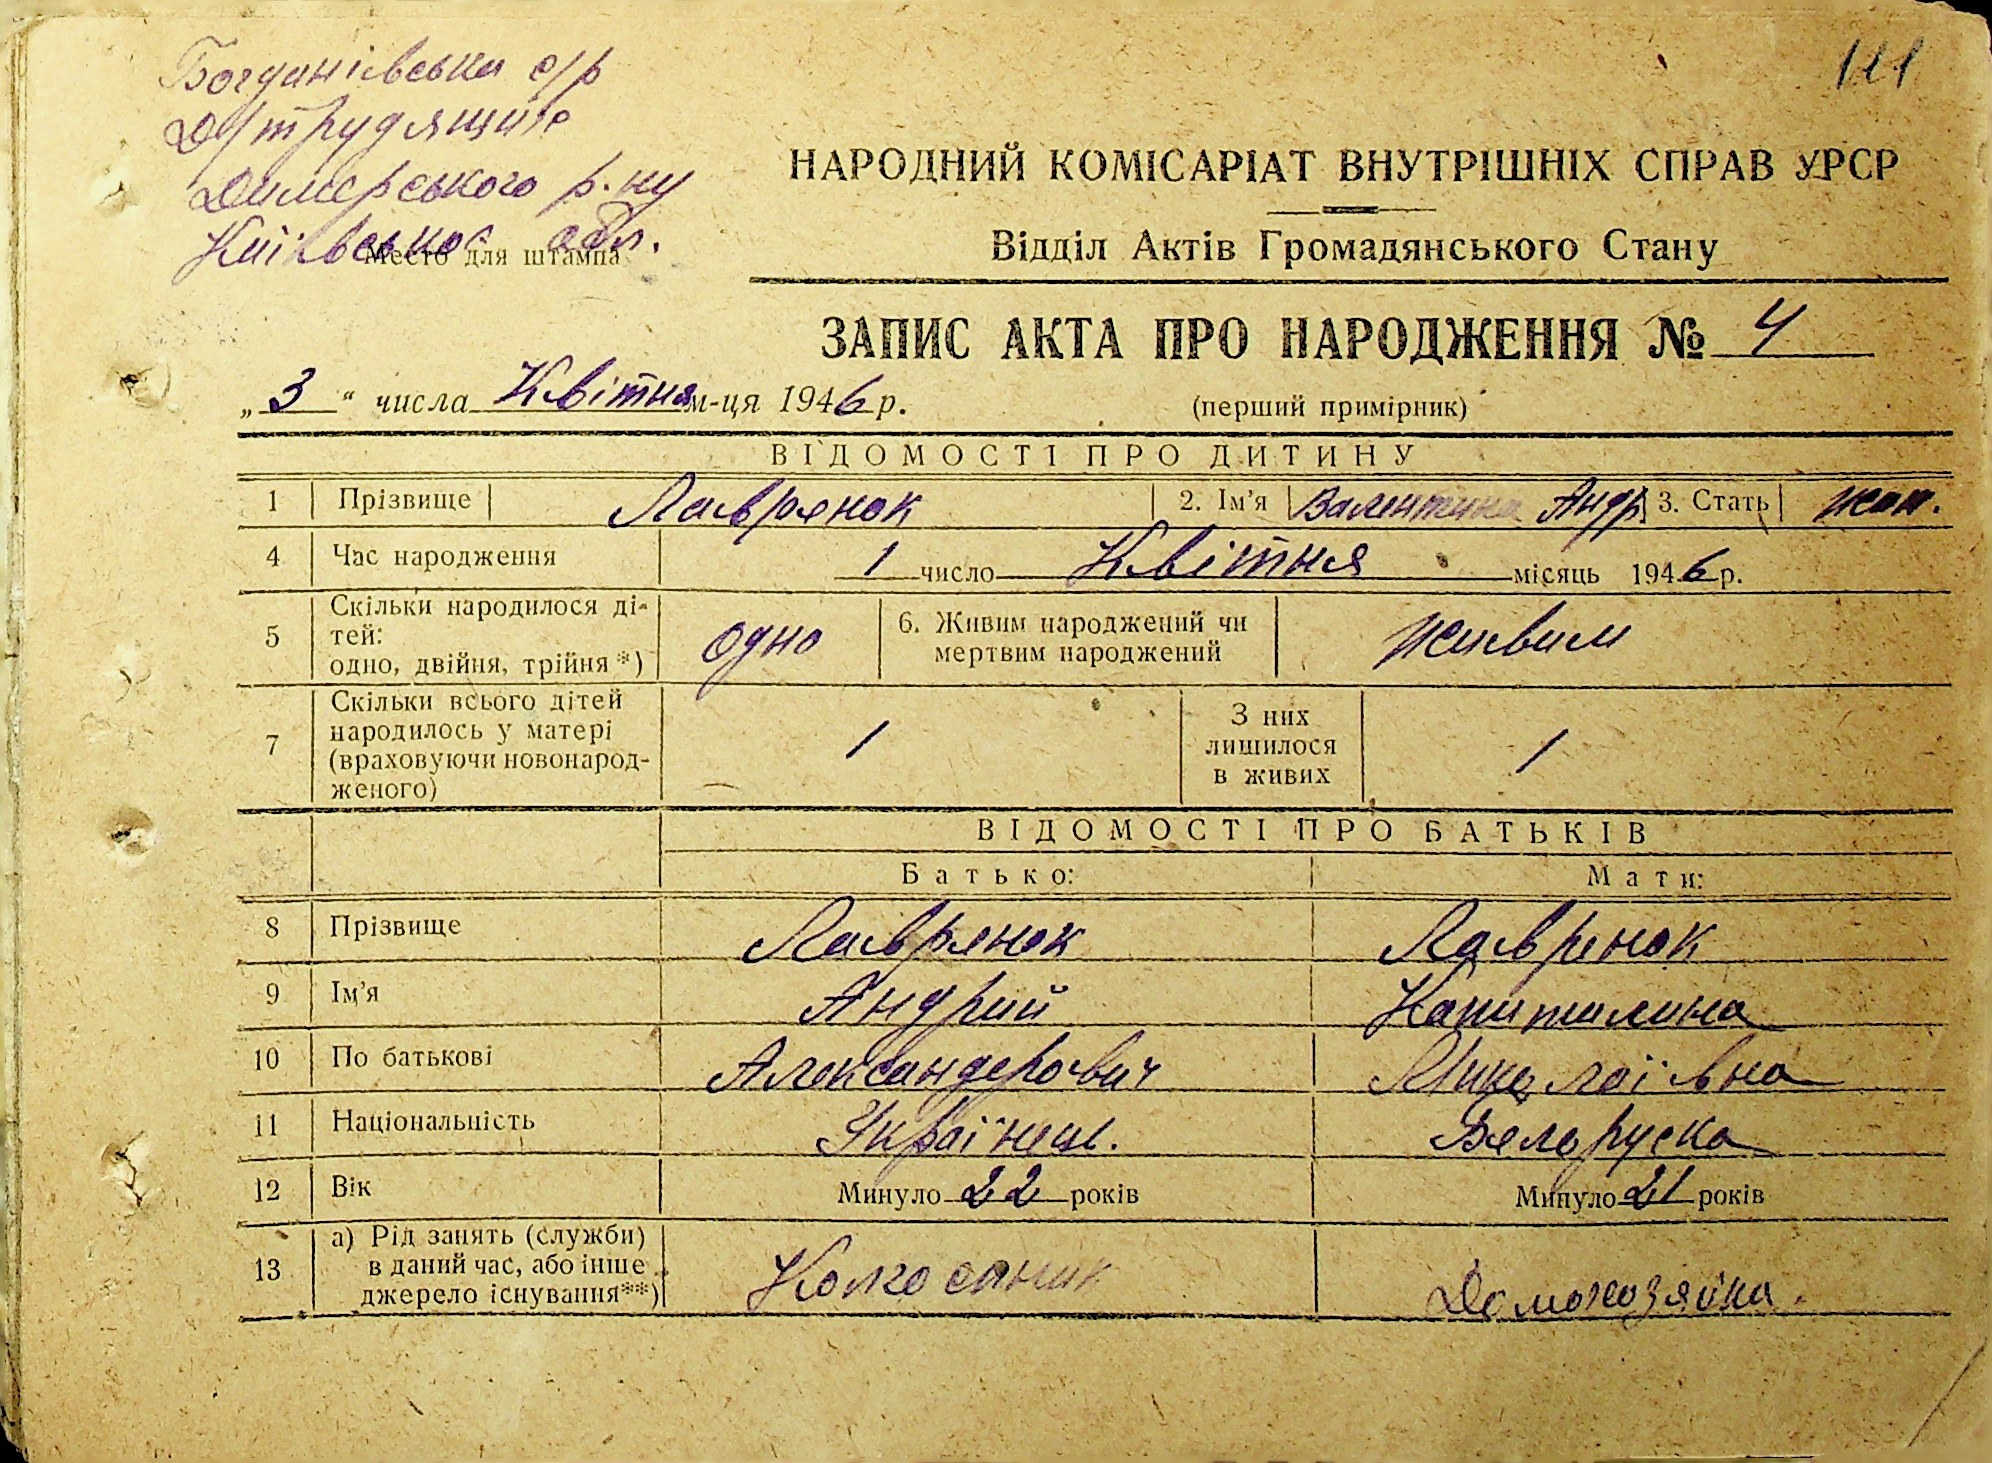 Богданівська с/р
Д/трудящихе
Димерського р-ну
Київської обл.
Место для штампа
111
НАРОДНИЙ КОМІСАРІАТ ВНУТРІШНІХ СПРАВ УРСР
Відділ Актів Громадянського Стану
ЗАПИС АКТА ПРО НАРОДЖЕННЯ № 4
„3“ числа Квітня м-ця 1946 р.
(перший примірник)
ВІДОМОСТІ ПРО ДИТИНУ
1 Прізвище Лавренок 2. Ім'я Валентина Андр. 3. Стать жін.
4 Час народження 1 число Квітня місяць 1946 р.
5 Скільки народилося ді-
тей:
одно, двійня, трійня*) одно 6. Живим народжений чи
мертвим народжений живим
7 Скільки всього дітей
народилось у матері
(враховуючи новонарод-
женого) 1 З них
лишилося
в живих 1
ВІДОМОСТІ ПРО БАТЬКІВ
Батько: Мати:
8 Прізвище Лавренок Лавренок
9 Ім'я Андрий Капитилина
10 По батькові Александерович Миколаївна
11 Національність Українец. Белоруска
12 Вік Минуло 22 років Минуло 21 років
13 а) Рід занять (служби)
в даний час, або інше
джерело існування**) Колгоспник Домохозяйка.